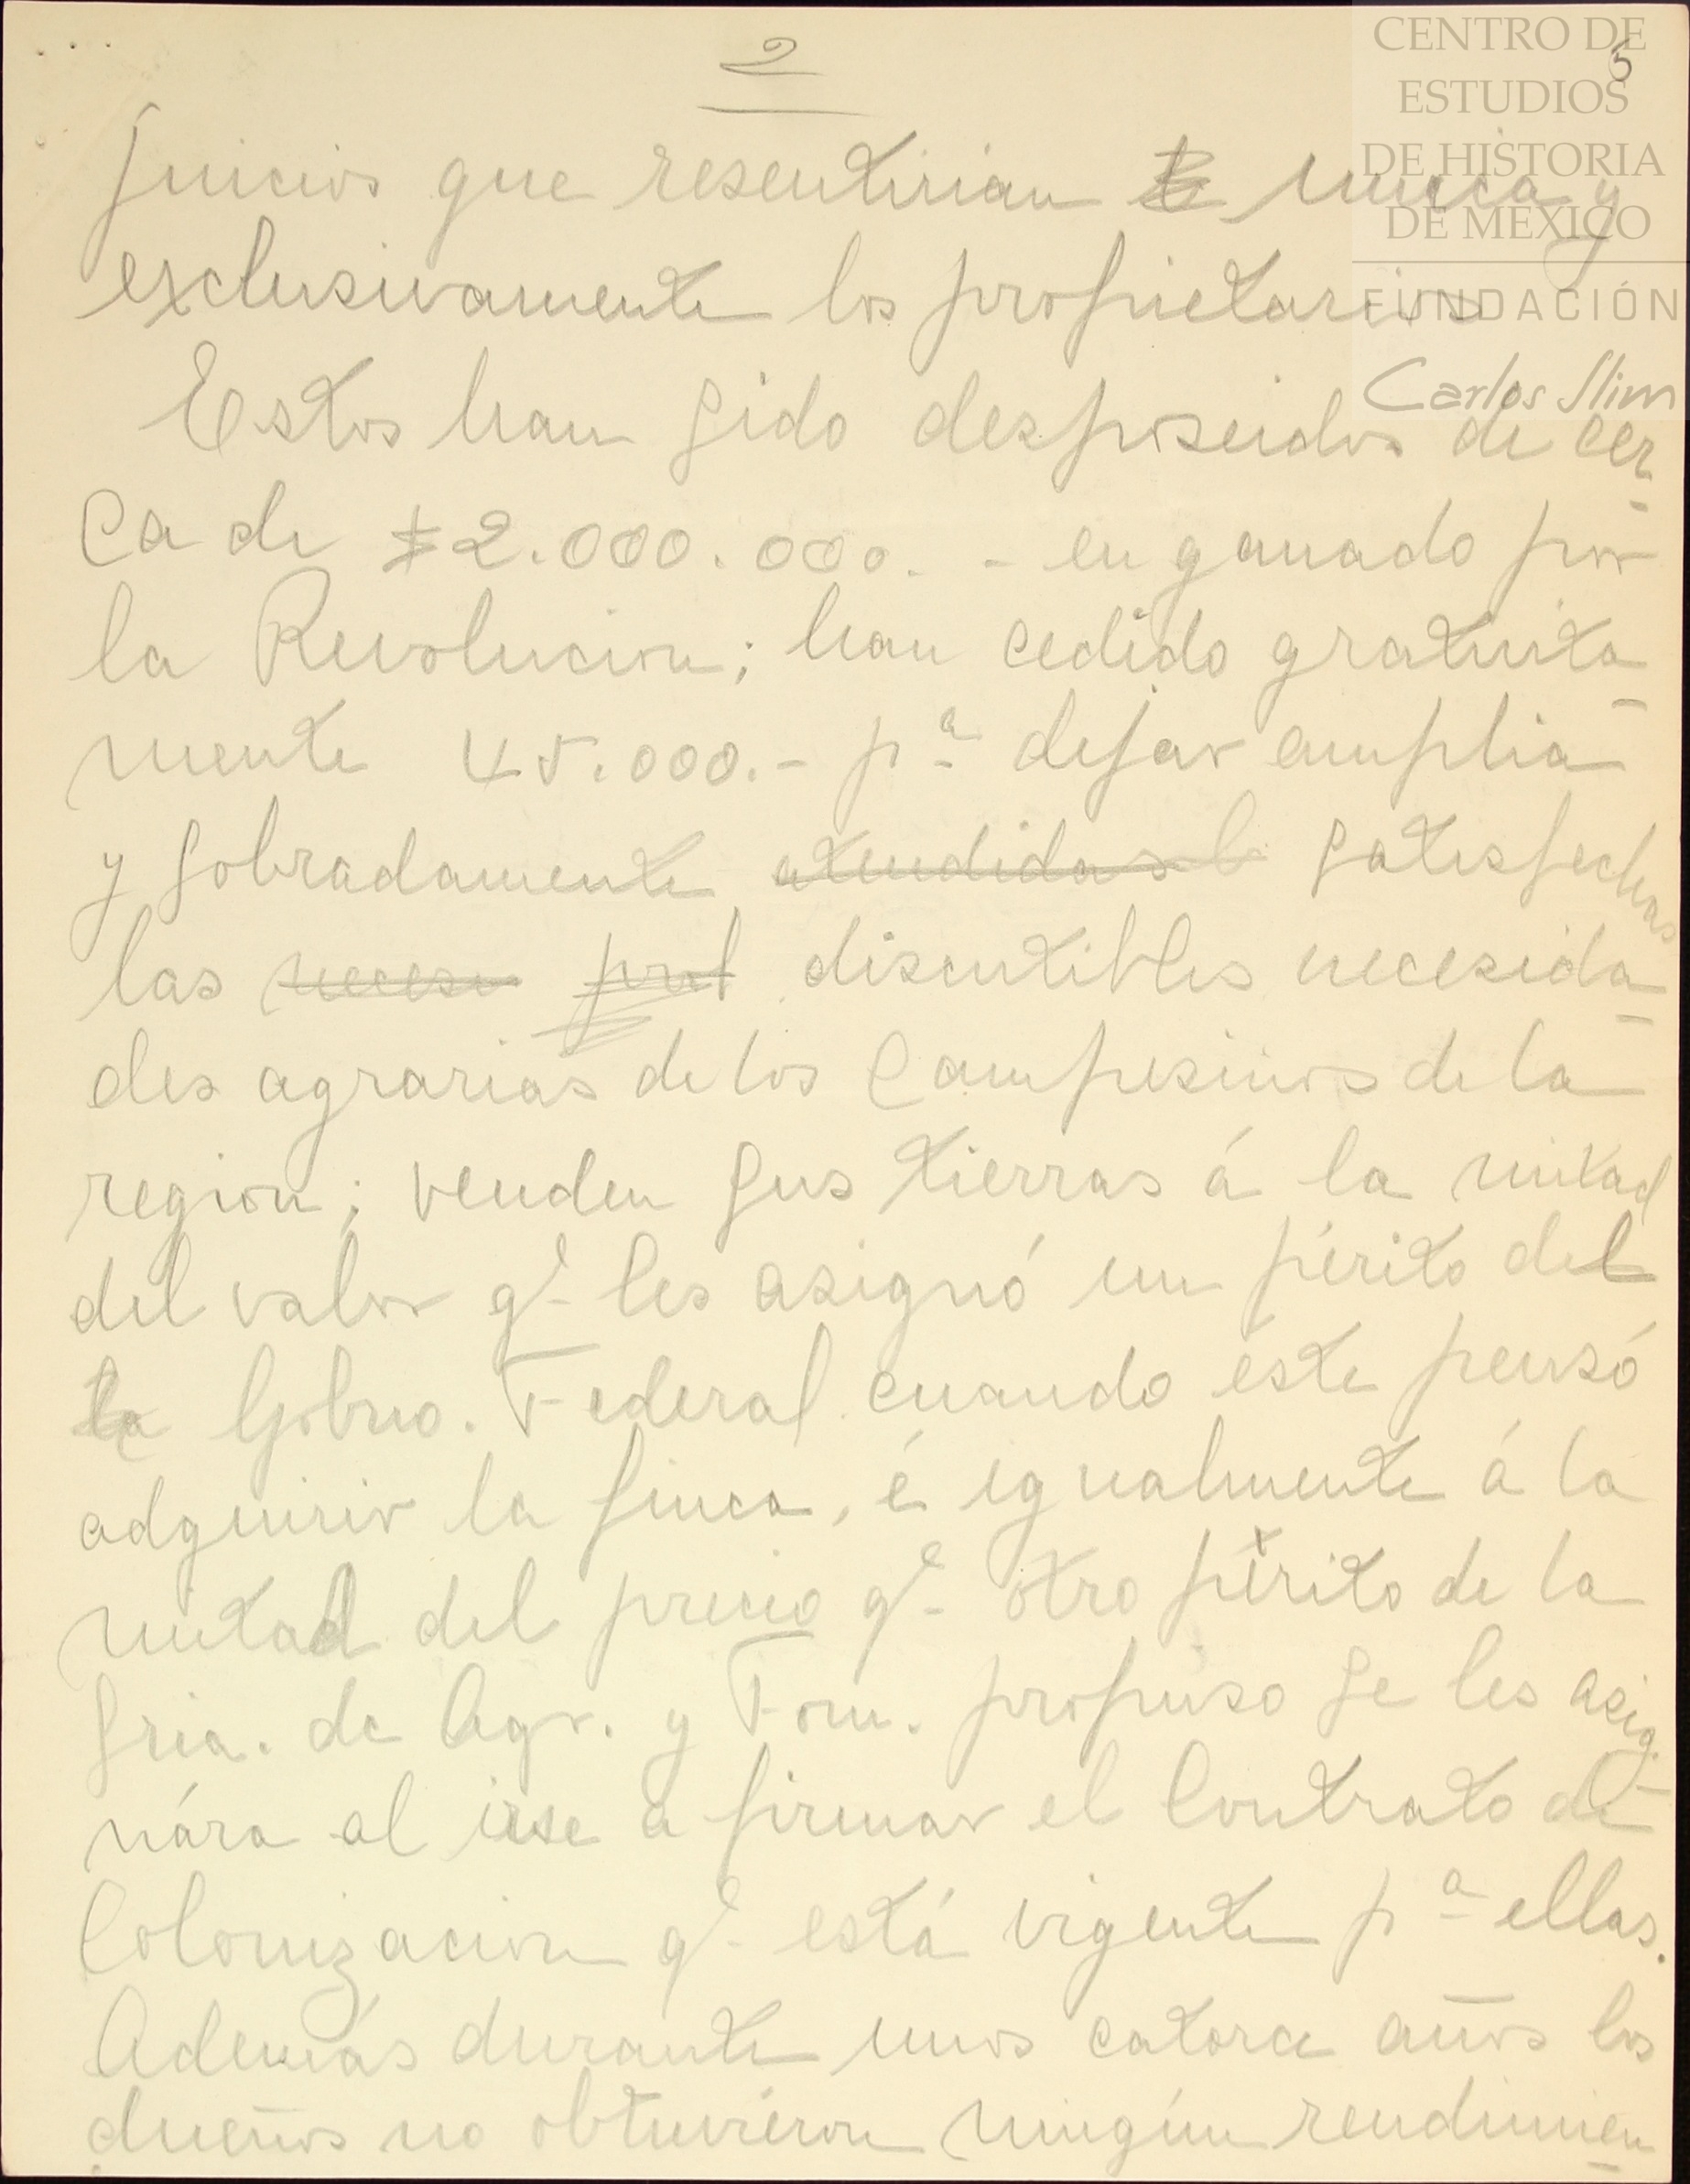 2
5
CENTRO DE
ESTUDIOS
DE HISTORIA
DE MÉXICO
FUNDACIÓN
Carlos Slim
juicios que resentirian unica y
exclusivamente los propietarios
Estos han sido desposeidos de cer
ca de $2.000.000. - en ganado por
la Revolucion; han cedido gratuita
mente 45.000.- pª dejar amplia
y sobradamente atendidas satisfechas
las neces prob discutibles necesida
des agrarias de los Campesinos de la
region; venden sus tierras á la mitad
del valor qe les asignó un périto del
la Gobno. Federal cuando éste pensó
adquirir la finca, é igualmente á la
mitad del precio qe otro périto de la
Sria. de Agr. y Fom. propuso se les asig
nára al irse a firmar el Contrato de
Colonizacion qe está vigente pª ellas.
Además durante unos catorce años los
dueños no obtuviéron ningún rendimien